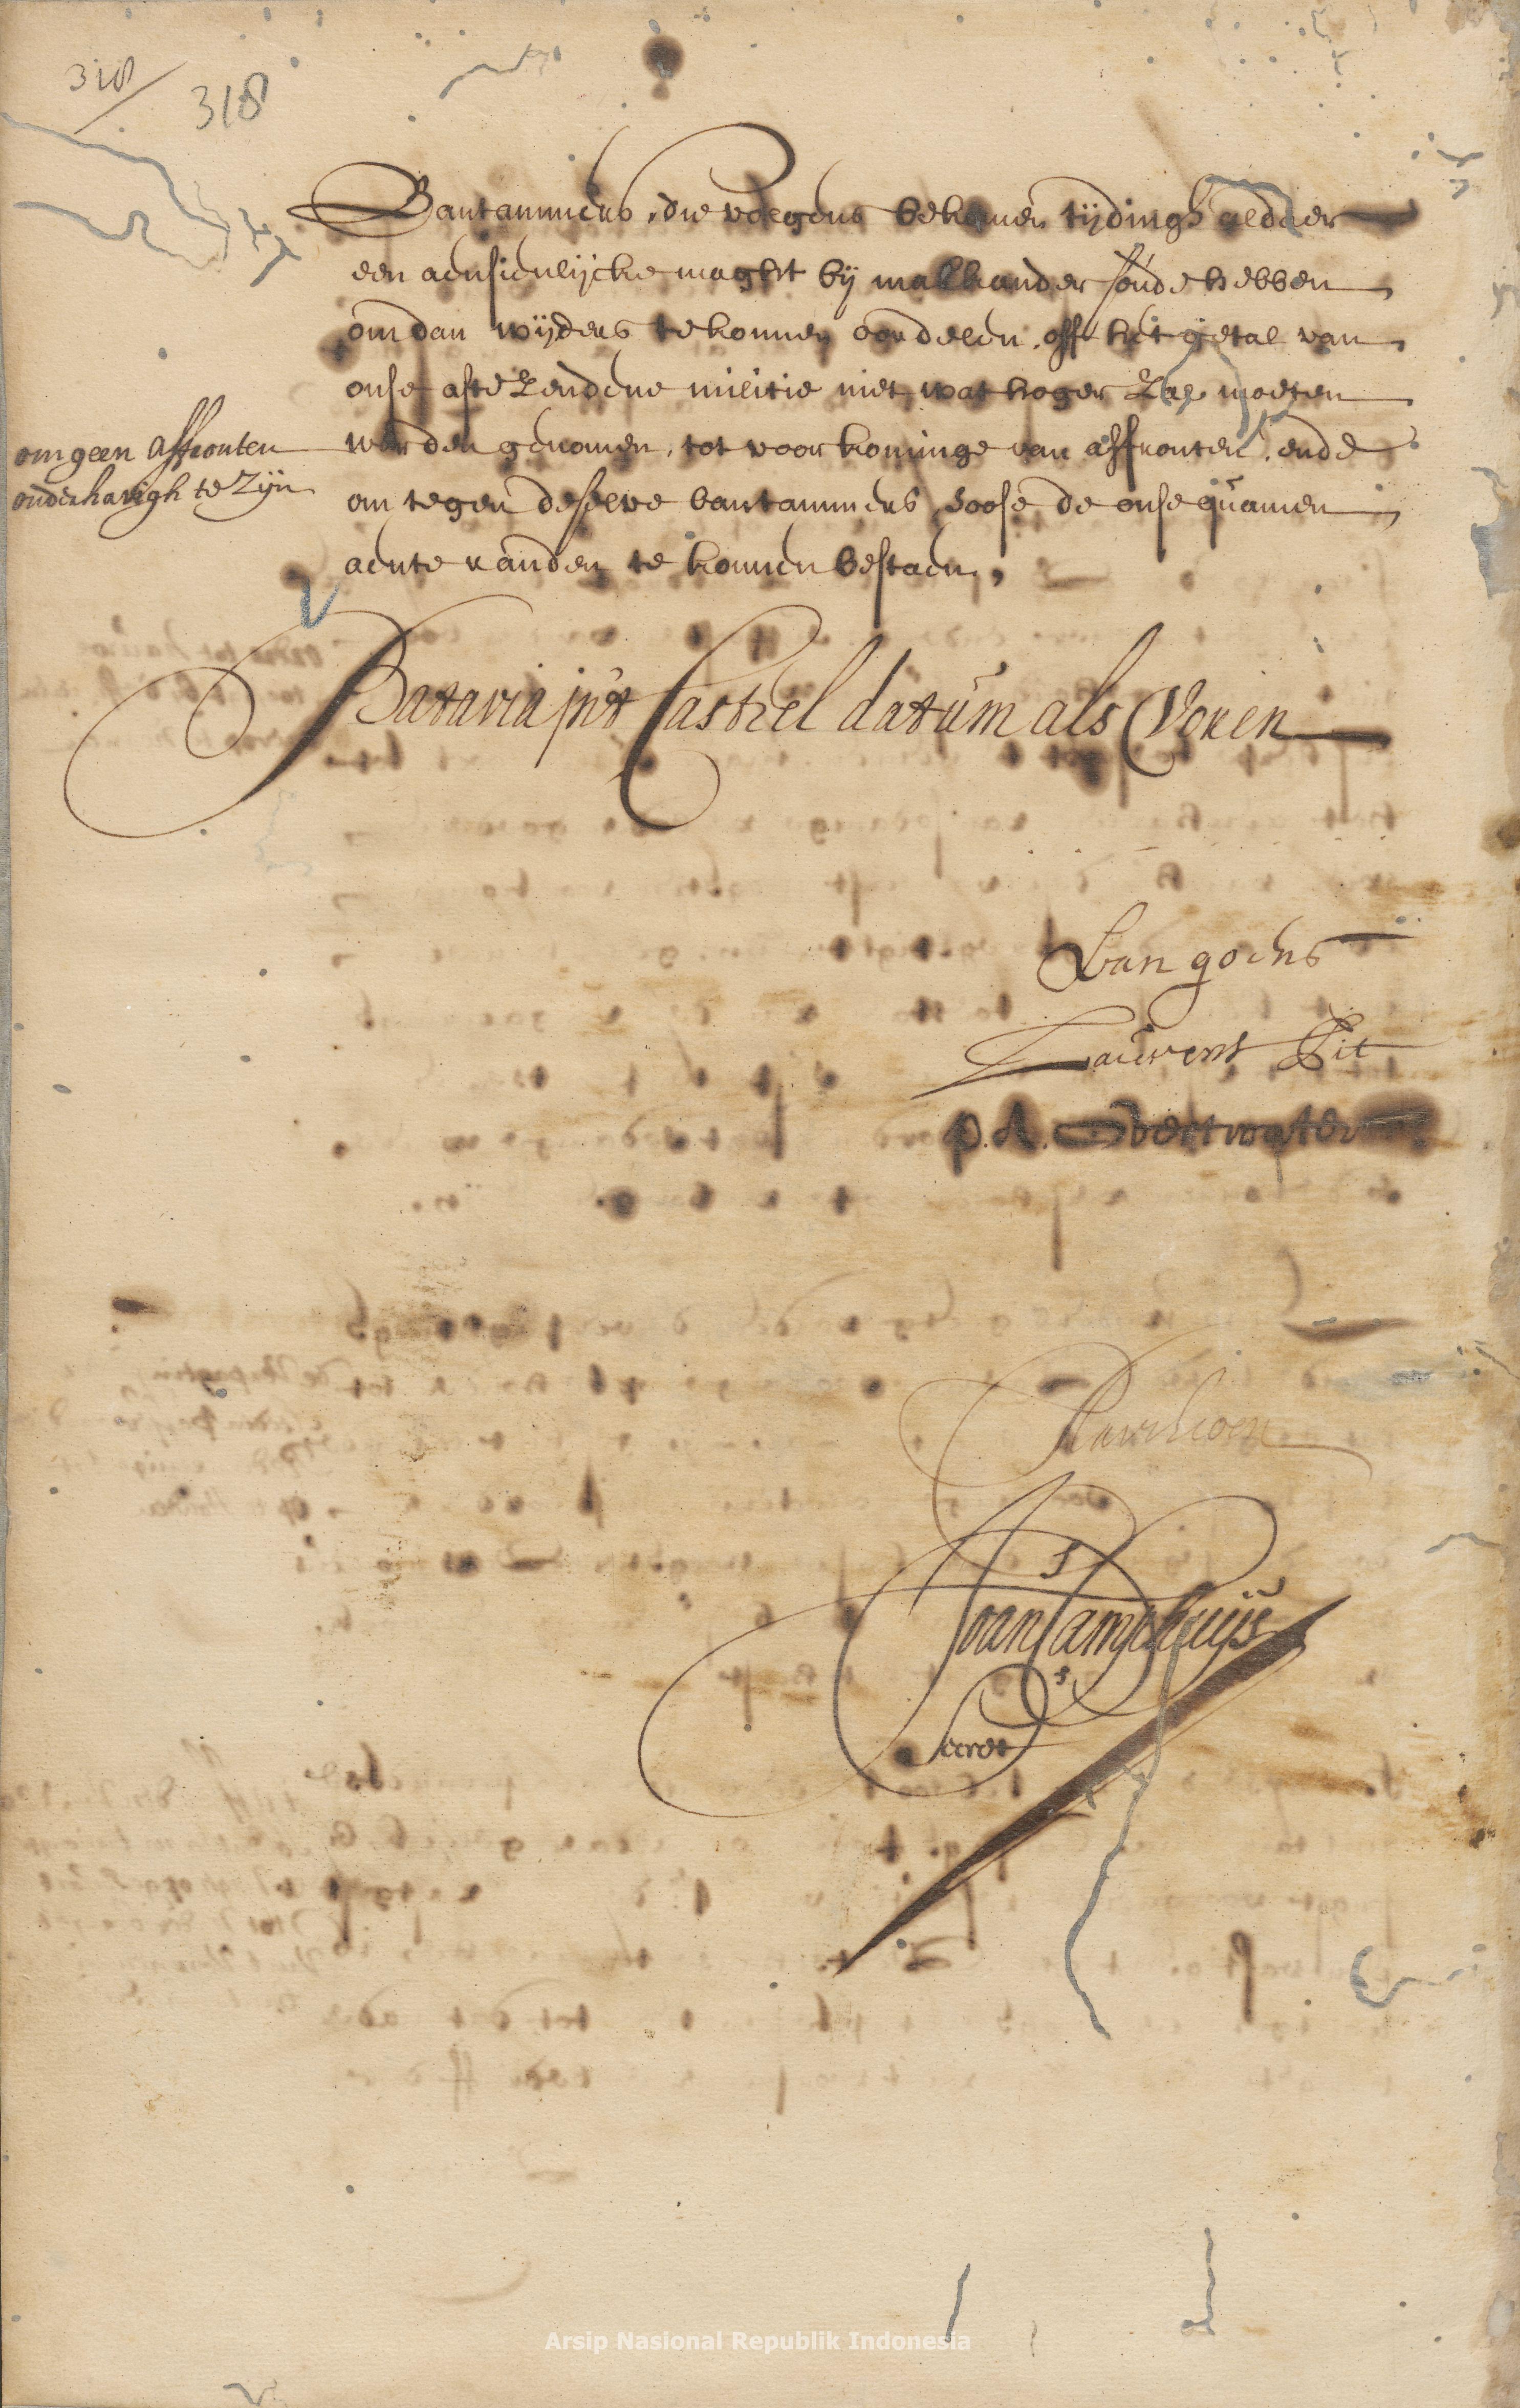 318
318
Bantammers, die volgens bekomen tijdingh aldaer
een aensienlijcke maght bij malkander soude hebben
om dan wijders te konnen oordelen, off het getal van
onse afte zendene militie niet wat hoger zal moeten
werden genomen, tot voorkominge van affronten, ende
om tegen deselve bantammers, soose de onse quamen
aente randen, te konnen bestaen,
om geen affronten
onderhavigh te zijn
Batavia in't Casteel datum als Voren
Van goens
Laurens Pit
p.A. Overtwater
Joan Camphuijs
Secret
Arsip Nasional Republik Indonesia